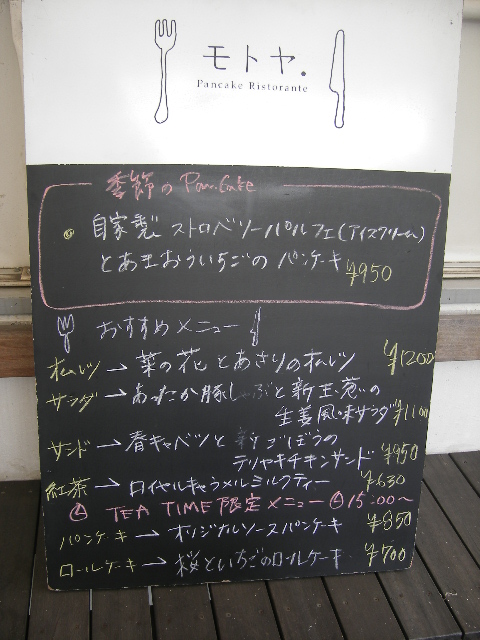 モトヤ.
Pancake Ristorante
季節の Pancake
自家製 ストロベリーパルフェ(アイスクリーム)
とあまおういちごの パンケーキ ¥950
おすすめメニュー
オムレツ → 菜の花とあさりのオムレツ ¥1200
サラダ → あったか豚しゃぶと新玉葱の
生姜風味サラダ ¥1100
サンド → 春キャベツと新ごぼうの
テリヤキチキンサンド ¥950
紅茶 → ロイヤルキャラメルミルクティー ¥630
TEA TIME 限定メニュー 15:00~
パンケーキ → オリジナルソースパンケーキ ¥850
ロールケーキ → 桜といちごのロールケーキ ¥700